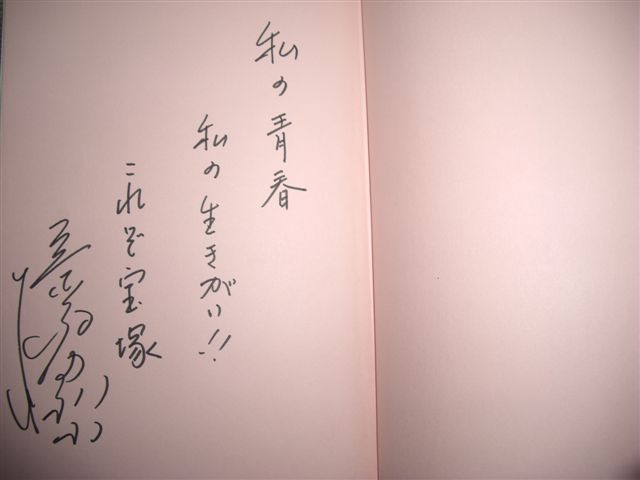 私の青春
私の生きがい!!
これぞ宝塚